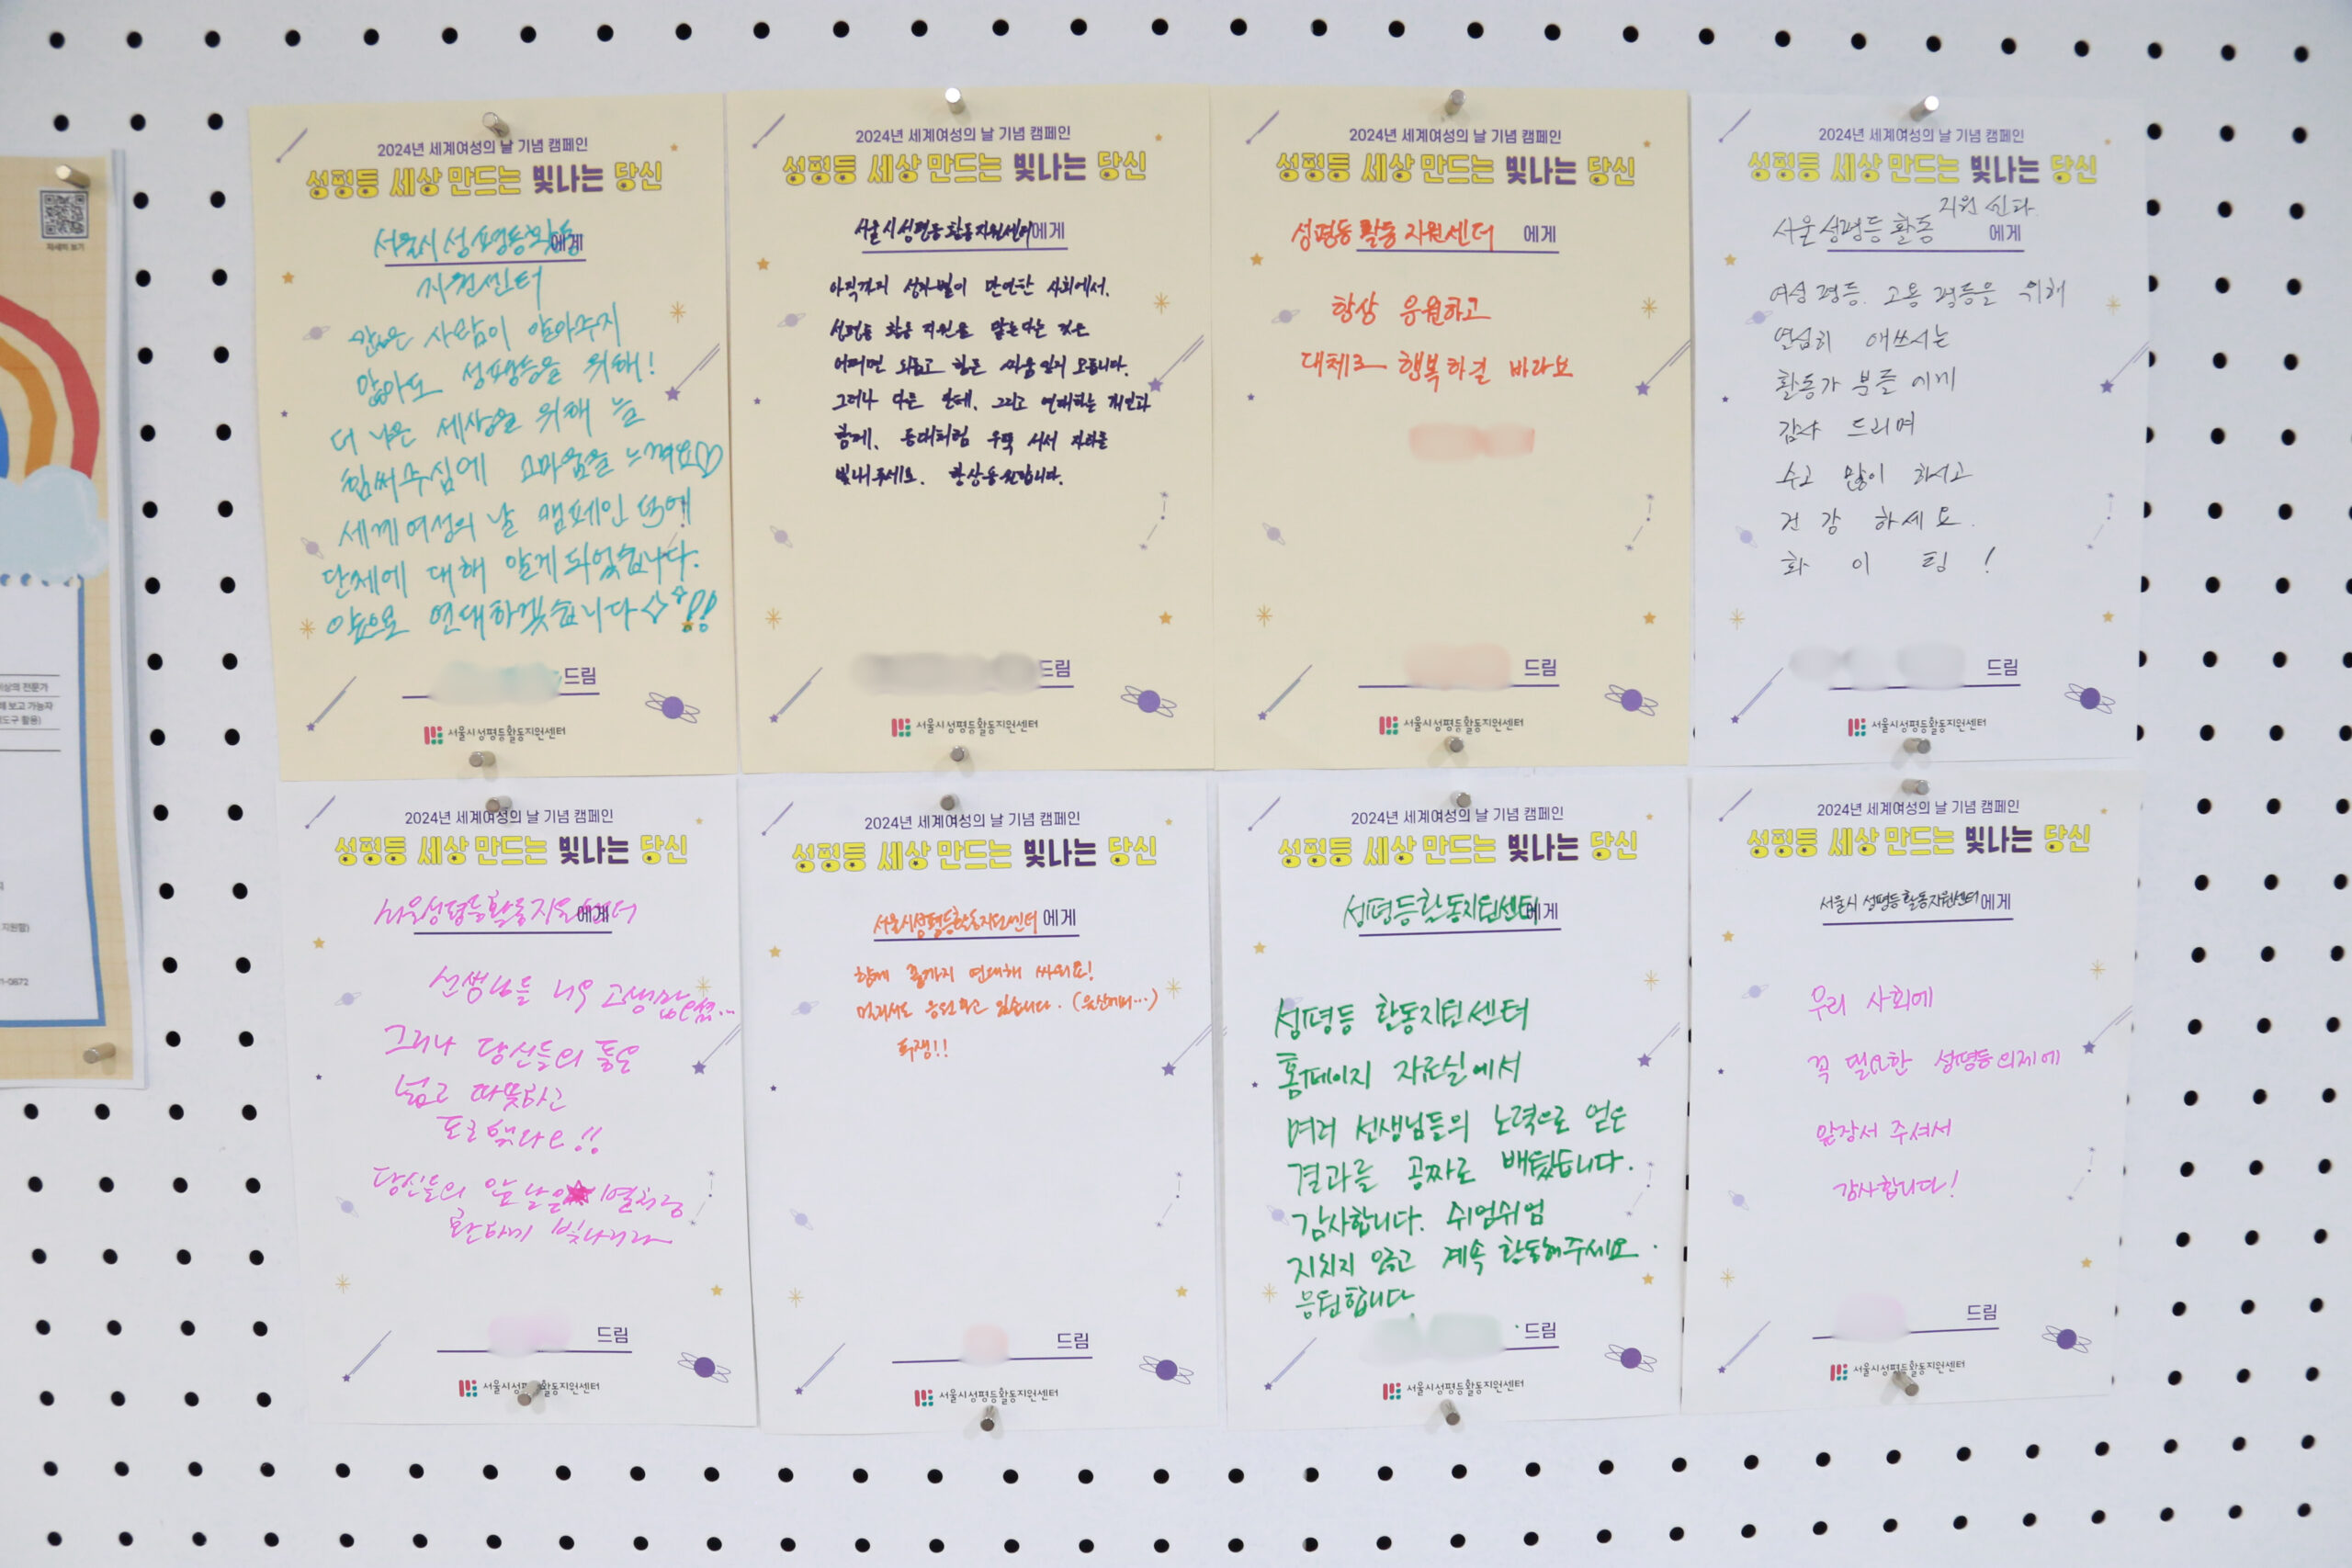 자세히 보기
이상의 전문가
해 보고 가능자
(도구 활용)
지원함)
1-0872
2024년 세계여성의 날 기념 캠페인
성평등 세상 만드는 빛나는 당신
서울시성평등활동에게
지원센터
많은 사람이 알아주지
않아도 성평등을 위해!
더 나은 세상을 위해 늘
힘써주심에 고마움을 느껴요♡
세계여성의 날 캠페인 덕에
단체에 대해 알게 되었습니다.
앞으로 연대하겠습니다!!
드림
서울시성평등활동지원센터
2024년 세계여성의 날 기념 캠페인
성평등 세상 만드는 빛나는 당신
서울시성평등활동지원센터에게
아직까지 성차별이 만연한 사회에서,
성평등 활동 지원을 맡는다는 것은
어쩌면 외롭고 힘든 싸움일지 모릅니다.
그러나 다른 단체, 그리고 연대하는 개인과
함께, 등대처럼 우뚝 서서 자리를
빛내주세요. 항상 응원합니다.
드림
서울시성평등활동지원센터
2024년 세계여성의 날 기념 캠페인
성평등 세상 만드는 빛나는 당신
성평등 활동 지원센터 에게
항상 응원하고
대체로 행복하길 바라요
드림
서울시성평등활동지원센터
2024년 세계여성의 날 기념 캠페인
성평등 세상 만드는 빛나는 당신
서울 성평등 활동 지원 에게
여성 평등. 고용 평등을 위해
열심히 애쓰시는
활동가 분들에게
감사 드리며
수고 많이 하시고
건강 하세요.
화 이 팅 !
드림
서울시성평등활동지원센터
2024년 세계여성의 날 기념 캠페인
성평등 세상 만드는 빛나는 당신
서울성평등활동지원센터 에게
선생님들 너무 고생많으셨...
그러나 당신들의 품은
넓고 따뜻하고
또 빛나요!!
당신들의 앞날은 별처럼
환하게 빛나리라
드림
서울시성평등활동지원센터
2024년 세계여성의 날 기념 캠페인
성평등 세상 만드는 빛나는 당신
서울시성평등활동지원센터 에게
함께 끝까지 연대해 싸워요!
멀리서도 응원하고 있습니다. (울산에서…)
투쟁!!
드림
서울시성평등활동지원센터
2024년 세계여성의 날 기념 캠페인
성평등 세상 만드는 빛나는 당신
성평등활동지원센터에게
성평등 활동지원센터
홈페이지 자료실에서
여러 선생님들의 노력으로 얻은
결과를 공짜로 배웠습니다.
감사합니다. 쉬엄쉬엄
지치지 않고 계속 활동해주세요.
응원합니다.
드림
서울시성평등활동지원센터
2024년 세계여성의 날 기념 캠페인
성평등 세상 만드는 빛나는 당신
서울시 성평등활동지원센터에게
우리 사회에
꼭 필요한 성평등 의제에
앞장서 주셔서
감사합니다!
드림
서울시성평등활동지원센터